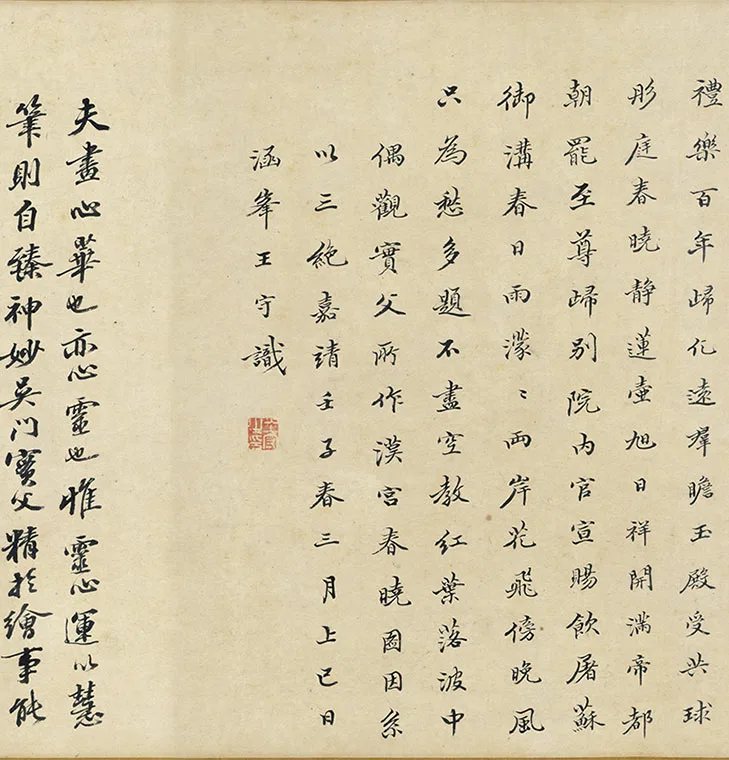 禮樂百年歸化遠羣瞻玉殿受共球
彤庭春曉静蓮壷旭日祥開滿帝都
朝罷至尊歸别院内官宣賜飲屠蘇
御溝春日雨濛〻兩岸花飛傍晚風
只為愁多題不盡空教紅葉落波中
偶觀實父所作漢宫春曉圖因系
以三絶嘉靖壬子春三月上巳日
涵峯王守識
夫畫心華也亦心靈也惟靈心運以慧
筆則自臻神妙吴门實父精於繪事能